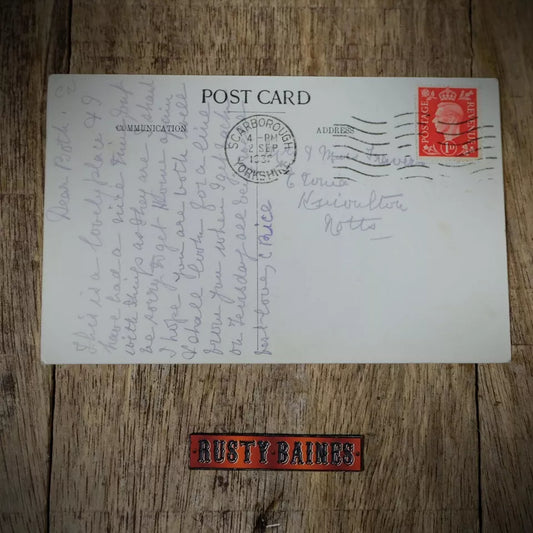 POST CARD
COMMUNICATION
ADDRESS
SCARBOROUGH
4 - PM
2 SEP
YORKSHIRE
POSTAGE
REVENUE
1D
Dear Both
This is a lovely place & I
have had a nice time but
with things as they are I shall
be sorry to get home again
I hope you are both well
I shall look for a line
from you when I get
on Tuesday all being
best love C Price
Notts
RUSTY BAINES